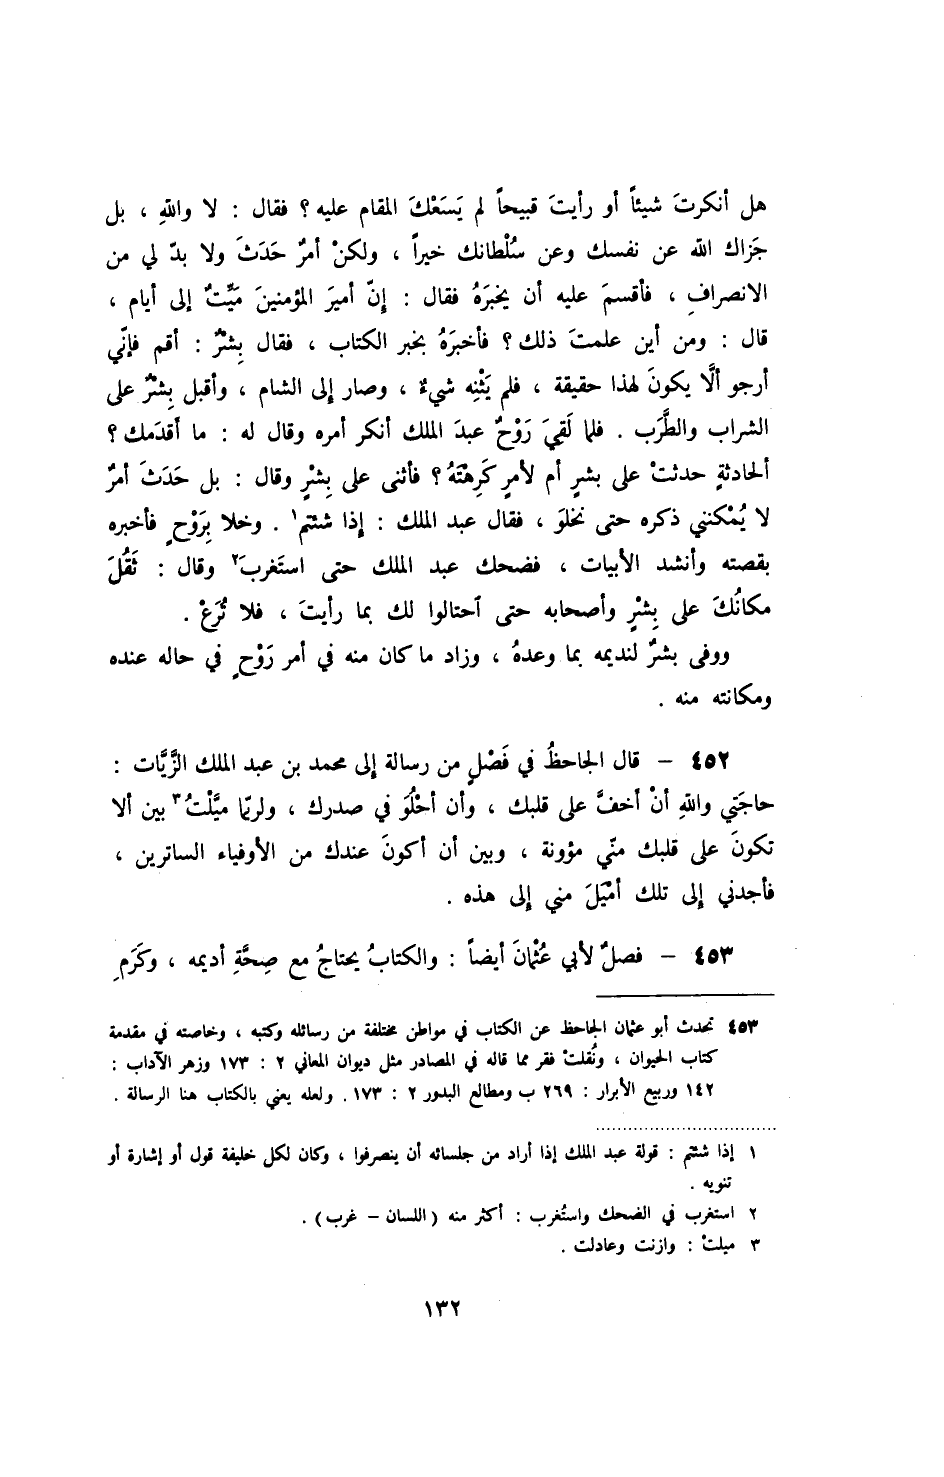 هل أنكرتَ شيئاً أو رأيتَ قبيحاً لم يَسَعْكَ المقام عليه ؟ فقال : لا واللهِ ، بل
جَزاك الله عن نفسك وعن سُلْطانك خيراً ، ولكنْ أمرٌ حَدَثَ ولا بدّ لي من
الانصرافِ ، فأقسمَ عليه أن يخبرَهُ فقال : إنّ أميرَ المؤمنينَ مَيِّتٌ إلى أيام ،
قال : ومن أين علمتَ ذلك ؟ فأخبرَهُ بخبر الكتاب ، فقال بِشْرٌ : أقم فإنّي
أرجو ألَّا يكونَ لهذا حقيقة ، فلم يَثْنِه شيءٌ ، وصار إلى الشام ، وأقبل بِشْرٌ على
الشراب والطَّرَب . فلما لَقِيَ رَوْحٌ عبدَ الملك أنكر أمره وقال له : ما أقدَمك ؟
ألحادثةٍ حدثتْ على بشرٍ أم لأمرٍ كَرِهْتَهُ ؟ فأثنى على بِشْرٍ وقال : بل حَدَثَ أمرٌ
لا يُمْكنني ذكره حتى نخلوَ ، فقال عبد الملك : إذا شئتم١ . وخلا بِرَوْحٍ فأخبره
بقصته وأنشد الأبيات ، فضحك عبد الملك حتى استَغربَ٢ وقال : ثَقُلَ
مكانُكَ على بِشْرٍ وأصحابه حتى ٱحتالوا لك بما رأيتَ ، فلا تُرَعْ .
ووفى بشرٌ لنديمه بما وعدهُ ، وزاد ما كان منه في أمر رَوْحٍ في حاله عنده
ومكانته منه .
٤٥٢ – قال الجاحظُ في فَصْلٍ من رسالة إلى محمد بن عبد الملك الزَّيَّات :
حاجَتي واللهِ أنْ أخفَّ على قلبك ، وأن أحْلُوَ في صدرك ، ولربّما ميَّلْتُ٣ بين ألا
تكونَ على قلبك منّي مؤونة ، وبين أن أكونَ عندك من الأوفياء الساترين ،
فأجدني إلى تلك أمْيَلَ مني إلى هذه .
٤٥٣ – فصلٌ لأبي عُثْمانَ أيضاً : والكتابُ يحتاجُ مع صِحَّةِ أديمه ، وكَرَمِ
٤٥٣ تحدث أبو عثمان الجاحظ عن الكتاب في مواطن مختلفة من رسائله وكتبه ، وخاصته في مقدمة
كتاب الحيوان ، ونُقلتْ فقر مما قاله في المصادر مثل ديوان المعاني ٢ : ١٧٣ وزهر الآداب :
١٤٢ وربيع الأبرار : ٢٦٩ ب ومطالع البدور ٢ : ١٧٣ . ولعله يعني بالكتاب هنا الرسالة .
١ إذا شئتم : قولة عبد الملك إذا أراد من جلسائه أن ينصرفوا ، وكان لكل خليفة قول أو إشارة أو
تنويه .
٢ استغرب في الضحك واستُغرب : أكثر منه (اللسان – غرب) .
٣ ميلتْ : وازنت وعادلت .
١٣٢